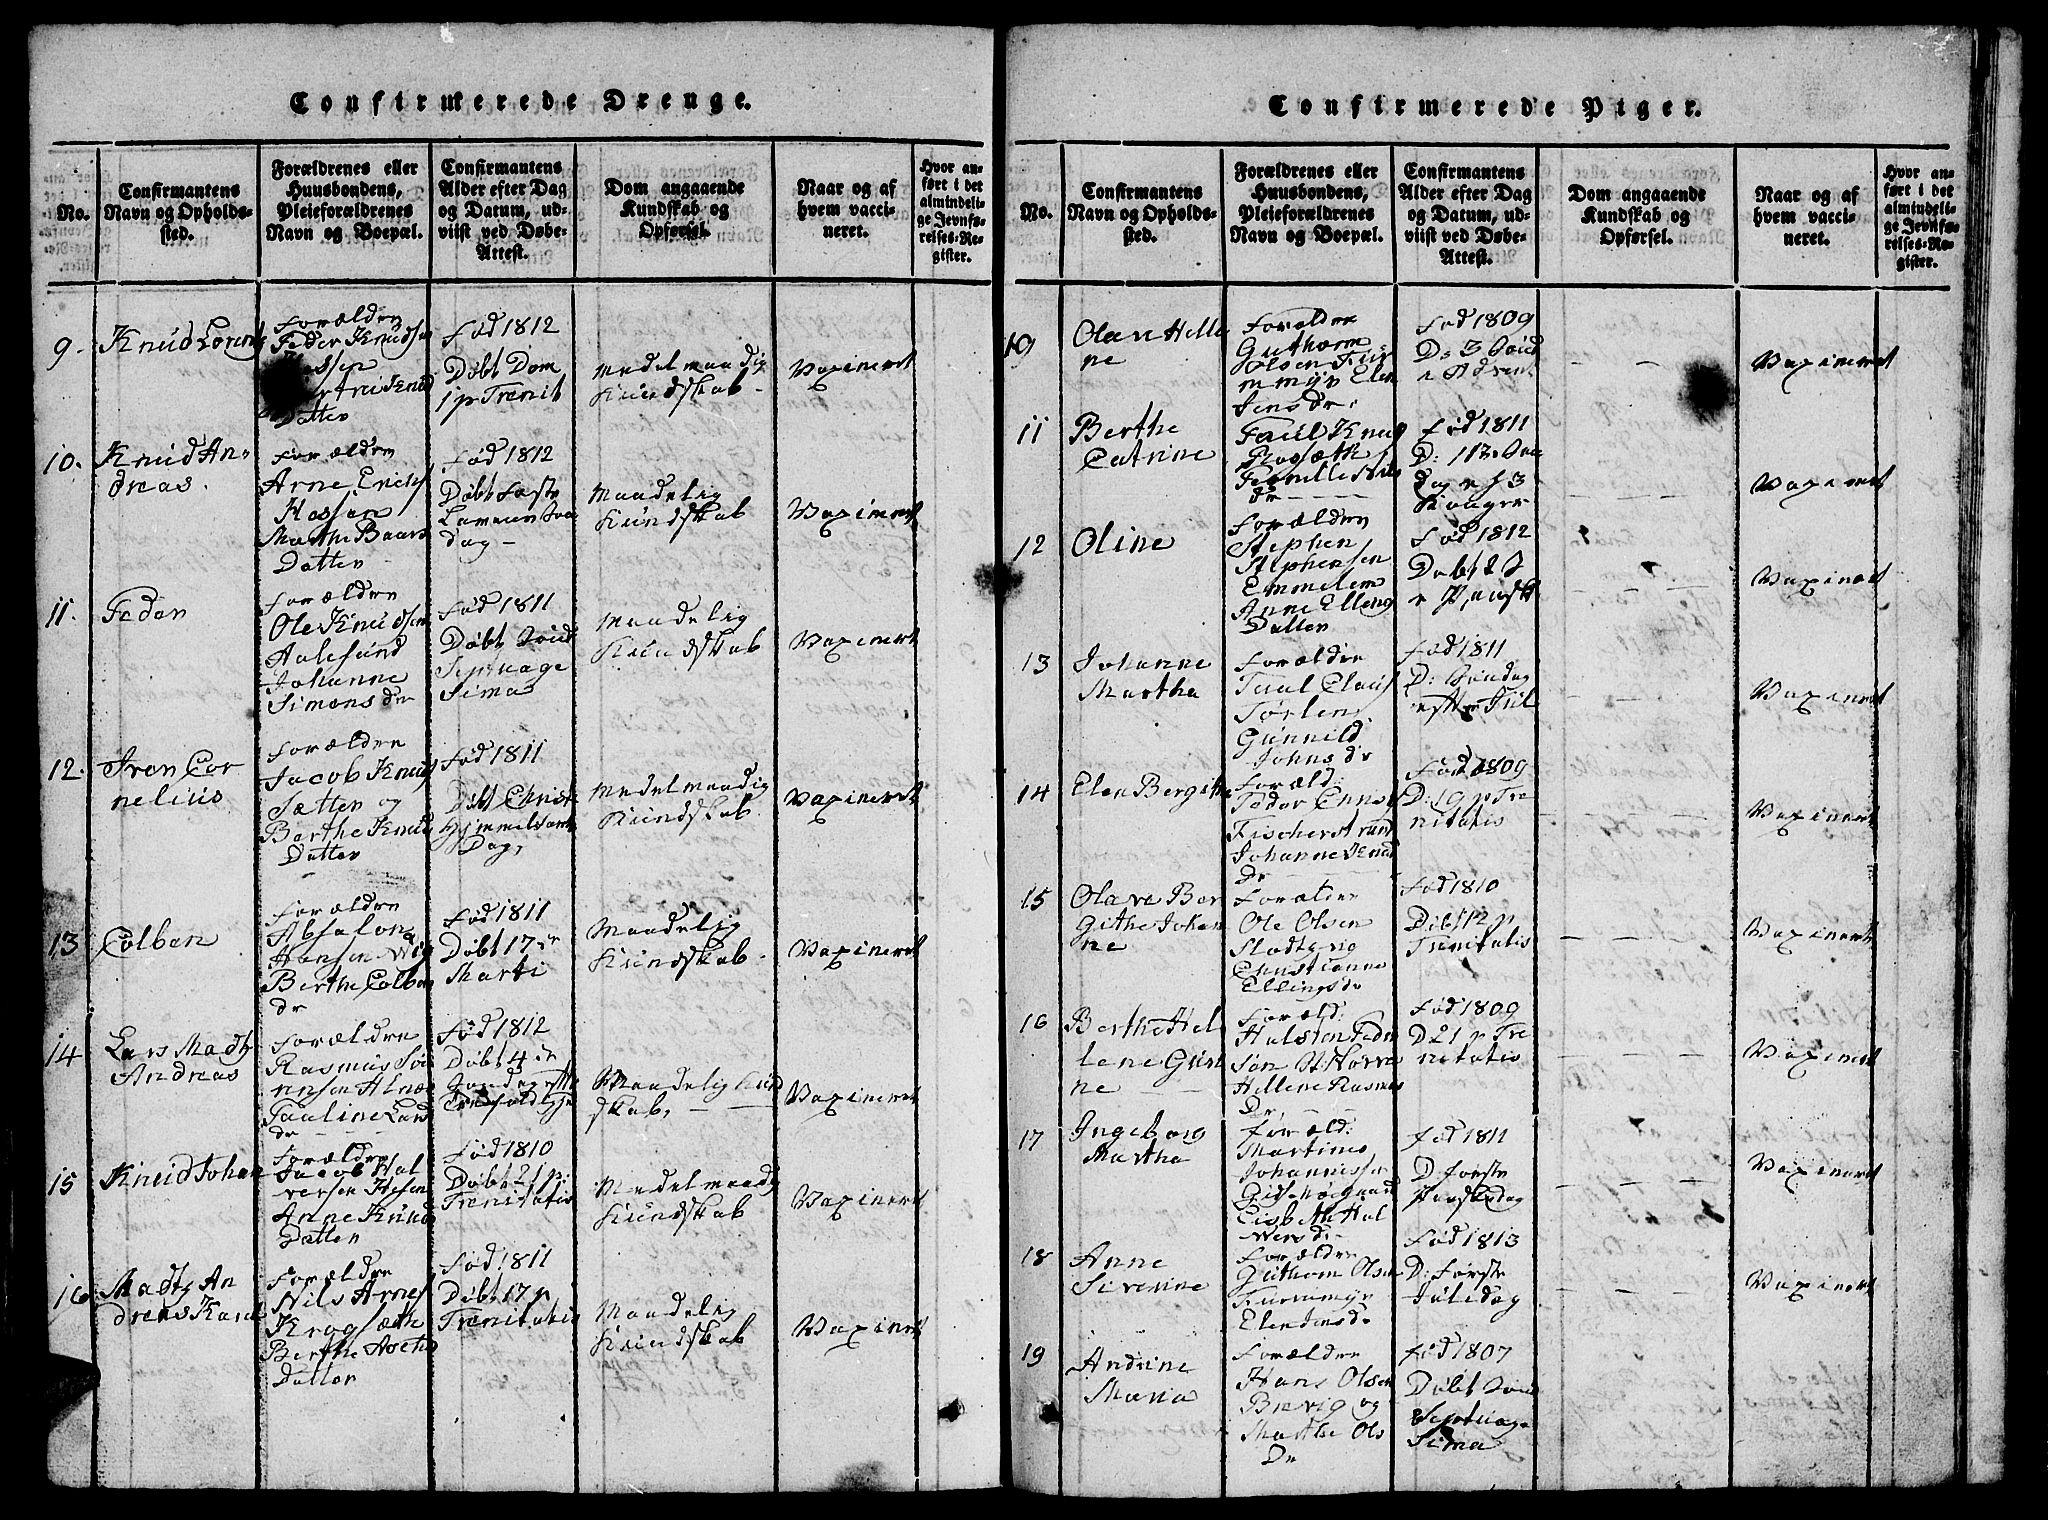 Confirmerede Drenge.
No.
Confirmantens
Navn og Opholds-
sted.
Forældrenes eller
Huusbondens,
Pleieforældrenes
Navn og Boepæl.
Confirmantens
Alder efter Dag
og Datum, ud-
viist ved Døbe-
Attest.
Dom angaaende
Kundskab og
Opførsel.
Naar og af
hvem vacci-
neret.
Hvor an-
ført i det
almindeli-
ge Jevnfø-
relses-Re-
gister.
9.
Knud Lorentz
Forældre
Peder Knudsen
Datter
Fød 1812
Døbt Dom
1 p Trenit
Medelmaadig
Kundskab
Vaxineret
10.
Knud An-
dreas.
Forældre
Arne Erichs
Hessen
Marthe Baars
Datter
Fød 1812
Døbt Føste
dag
Maadelig
Kundskab
Vaxineret
11.
Peder
Forældre
Ole Knudsen
Aalesund
Johanne
Simons dr
Fød 1811
Døbt Sønd
Septuage
Sima
Maadelig
Kundskab
Vaxineret
12.
Iven Cor
nelius
Forældre
Jacob Knuds
Sætter og
Berthe Knud
Datter
Fød 1811
Døbt Christi
Himmelfarts
Dag,
Medelmaadig
Kundskab
Vaxineret
13
Colben
Forældre
Absalon
Hansen Vig
Berthe Colben
dr
Fød 1811
Døbt 17de
Marti
Maadelig
Kundskab
Vaxineret
14
Lars Madtz
Andreas
Forældre
Rasmus Sør
ensen Alnæs
Pauline Lars
dr
Fød 1812
Døbt 4de
Søndag efter
Maadelig Kund
skab,
Vaxineret
15
Knud Johan
Forældre
Jacob Hal
versen Hesen
Anne Knuds
Datter
Fød 1810
Døbt 21 p:
Trenitatis
Medelmaadig
Kundskab
Vaxineret
16
Madtz An
dreas Karel
Forældre
Nils Arnes
Kragsæth
Berthe
Datter
Fød 1811
Døbt 17 p
Trenitatis
Maadelig
Kundskab
Vaxineret
Confirmerede Piger.
No.
Confirmantens
Navn og Opholds-
sted.
Forældrenes eller
Huusbondens,
Pleieforældrenes
Navn og Boepæl.
Confirmantens
Alder efter Dag
og Datum, ud-
viist ved Døbe-
Attest.
Dom angaaende
Kundskab og
Opførsel.
Naar og af
hvem vacci-
neret.
Hvor an-
ført i det
almindeli-
ge Jevnfø-
relses-Re-
gister.
10
Olave Helle
ne
Forældre
Guthorm
Olsen Fur
mmyr Elen
Jens dr:
Fød 1809
D: 3 Sønd
i Advent
Vaxineret
11
Berthe
Catrine
Paul Knud
dr
Fød 1811
D: 113
dag
Vaxineret
12
Oline
Forældre
Stephen
Stephensen
Emmelem
Anne Elling
Datter
Fød 1812
Døbt 2 S
Vaxineret
13
Johanne
Martha
Forældre
Paul Claus
Tørlen
Gunnild
Johns dr
Fød 1811
D: Søndag
efter Jul
Vaxineret
14
Elen Bergitte
Foræld:
Peder
Fischerstrand
Johanne Knud
Dr
Fød 1809
D: 19 p Tre
nitatis
Vaxineret
15
Olave Ber
Githe Johan
ne
Forælder
Ole Olsen
Slodtens
Christianne
Ellingsdr
Fød 1810
Døbt 12 p
Trenitatis
Vaxineret
16
Berthe Hel
lene Guri
ne
Foræld:
Halsten Peder
søn
Hellene Rasmus
Dr,
Fød 1809
D 21 p Tre
nitatis
Vaxineret
17
Ingeborg
Martha
Foræld:
Martinus
Johannessen
Lisbeth Hal
versdr
Fød 1811
D: Første
Paaskedag
Vaxineret
18
Anne
Siverine
Forældre
Guthorm Olsen
Furmmyr
Elen Jensdr
Fød 1813
D: Første
Juledag
Vaxineret
19
Andrine
Maria
Forældre
Hans Olsen
Brevig og
Marthe Ols
Dr
Fød 1807
Døbt Sønd
Septuage
Sima